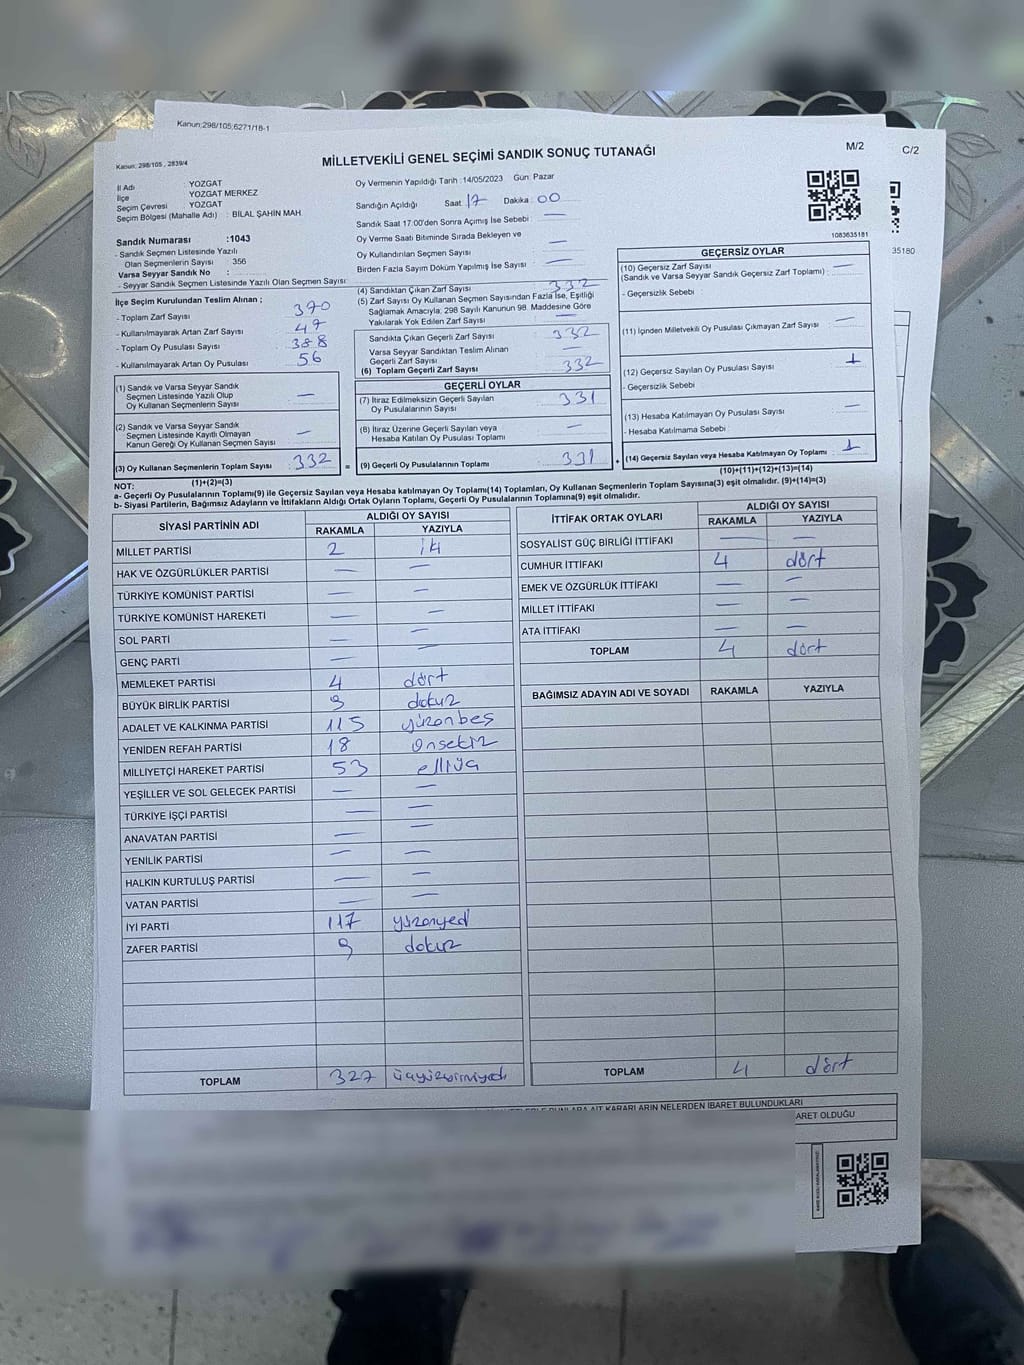 Kanun:298/105,6271/18-1
Kanun: 298/105 , 2839/4
MİLLETVEKİLİ GENEL SEÇİMİ SANDIK SONUÇ TUTANAĞI
M/2
C/2
İl Adı : YOZGAT
İlçe : YOZGAT MERKEZ
Seçim Çevresi : YOZGAT
Seçim Bölgesi (Mahalle Adı) : BİLAL ŞAHİN MAH.
Sandık Numarası :1043
- Sandık Seçmen Listesinde Yazılı
Olan Seçmenlerin Sayısı : 356
Varsa Seyyar Sandık No :
- Seyyar Sandık Seçmen Listesinde Yazılı Olan Seçmen Sayısı:
Oy Vermenin Yapıldığı Tarih :14/05/2023 Gün: Pazar
Sandığın Açıldığı Saat 17 Dakika 00
Sandık Saat 17:00'den Sonra Açımış İse Sebebi : —
Oy Verme Saati Bitiminde Sırada Bekleyen ve
Oy Kullandırılan Seçmen Sayısı —
Birden Fazla Sayım Döküm Yapılmış İse Sayısı —
1083635181
35180
İlçe Seçim Kurulundan Teslim Alınan ;
- Toplam Zarf Sayısı 370
- Kullanılmayarak Artan Zarf Sayısı 47
- Toplam Oy Pusulası Sayısı 388
- Kullanılmayarak Artan Oy Pusulası 56
(1) Sandık ve Varsa Seyyar Sandık
Seçmen Listesinde Yazılı Olup
Oy Kullanan Seçmenlerin Sayısı —
(2) Sandık ve Varsa Seyyar Sandık
Seçmen Listesinde Kayıtlı Olmayan
Kanun Gereği Oy Kullanan Seçmen Sayısı —
(3) Oy Kullanan Seçmenlerin Toplam Sayısı : 332
(1)+(2)=(3)
(4) Sandıktan Çıkan Zarf Sayısı 332
(5) Zarf Sayısı Oy Kullanan Seçmen Sayısından Fazla İse, Eşitliği
Sağlamak Amacıyla, 298 Sayılı Kanunun 98. Maddesine Göre
Yakılarak Yok Edilen Zarf Sayısı —
Sandıkta Çıkan Geçerli Zarf Sayısı 332
Varsa Seyyar Sandıktan Teslim Alınan
Geçerli Zarf Sayısı —
(6) Toplam Geçerli Zarf Sayısı 332
GEÇERLİ OYLAR
(7) İtiraz Edilmeksizin Geçerli Sayılan
Oy Pusulalarının Sayısı : 331
(8) İtiraz Üzerine Geçerli Sayılan veya
Hesaba Katılan Oy Pusulası Toplamı —
= (9) Geçerli Oy Pusulalarının Toplamı 331 +
GEÇERSİZ OYLAR
(10) Geçersiz Zarf Sayısı —
(Sandık ve Varsa Seyyar Sandık Geçersiz Zarf Toplamı) :
- Geçersizlik Sebebi :
(11) İçinden Milletvekili Oy Pusulası Çıkmayan Zarf Sayısı —
(12) Geçersiz Sayılan Oy Pusulası Sayısı 1
- Geçersizlik Sebebi
(13) Hesaba Katılmayan Oy Pusulası Sayısı —
- Hesaba Katılmama Sebebi :
(14) Geçersiz Sayılan veya Hesaba Katılmayan Oy Toplamı : 1
(10)+(11)+(12)+(13)=(14)
NOT:
a- Geçerli Oy Pusulalarının Toplamı(9) ile Geçersiz Sayılan veya Hesaba katılmayan Oy Toplamı(14) Toplamları, Oy Kullanan Seçmenlerin Toplam Sayısına(3) eşit olmalıdır. (9)+(14)=(3)
b- Siyasi Partilerin, Bağımsız Adayların ve İttifakların Aldığı Ortak Oyların Toplamı, Geçerli Oy Pusulalarının Toplamına(9) eşit olmalıdır.
SİYASİ PARTİNİN ADI ALDIĞI OY SAYISI
RAKAMLA YAZIYLA
MİLLET PARTİSİ 2 iki
HAK VE ÖZGÜRLÜKLER PARTİSİ — —
TÜRKİYE KOMÜNİST PARTİSİ — —
TÜRKİYE KOMÜNİST HAREKETİ — —
SOL PARTİ — —
GENÇ PARTİ — —
MEMLEKET PARTİSİ 4 dört
BÜYÜK BİRLİK PARTİSİ 9 dokuz
ADALET VE KALKINMA PARTİSİ 115 yüzonbeş
YENİDEN REFAH PARTİSİ 18 Onsekiz
MİLLİYETÇİ HAREKET PARTİSİ 53 elliüç
YEŞİLLER VE SOL GELECEK PARTİSİ — —
TÜRKİYE İŞÇİ PARTİSİ — —
ANAVATAN PARTİSİ — —
YENİLİK PARTİSİ — —
HALKIN KURTULUŞ PARTİSİ — —
VATAN PARTİSİ — —
İYİ PARTİ 117 yüzonyedi
ZAFER PARTİSİ 9 dokuz
TOPLAM 327 üçyüzyirmiyedi
İTTİFAK ORTAK OYLARI ALDIĞI OY SAYISI
RAKAMLA YAZIYLA
SOSYALİST GÜÇ BİRLİĞİ İTTİFAKI — —
CUMHUR İTTİFAKI 4 dört
EMEK VE ÖZGÜRLÜK İTTİFAKI — —
MİLLET İTTİFAKI — —
ATA İTTİFAKI — —
TOPLAM 4 dört
BAĞIMSIZ ADAYIN ADI VE SOYADI RAKAMLA YAZIYLA
TOPLAM 4 dört
KARARLARIN NELERDEN İBARET BULUNDUKLARI
ARET OLDUĞU